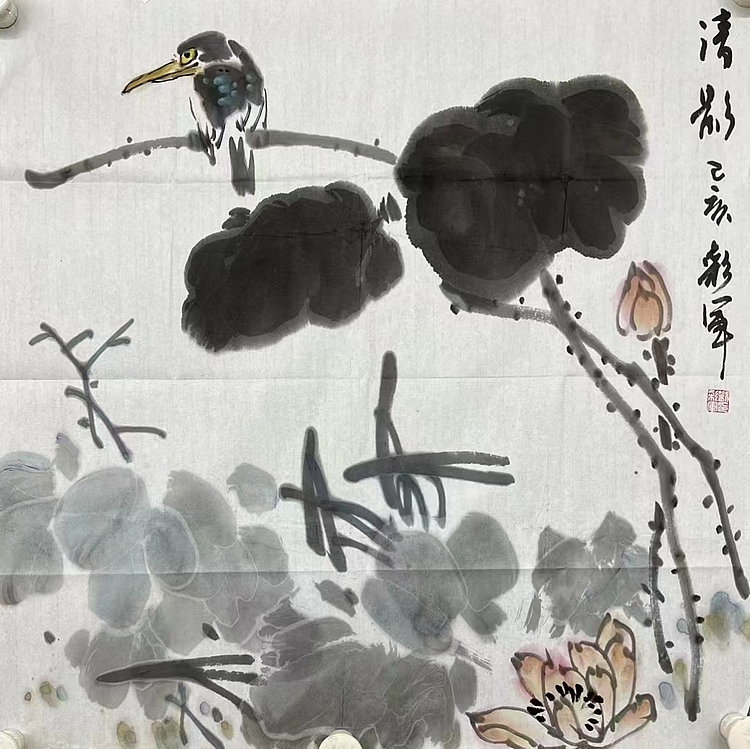 清影 己亥 彩军